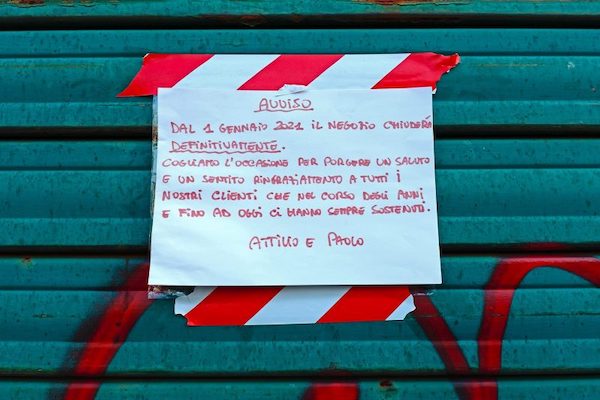 AVVISO
DAL 1 GENNAIO 2021 IL NEGOZIO CHIUDERÀ
DEFINITIVAMENTE.
COGLIAMO L'OCCASIONE PER PORGERE UN SALUTO
E UN SENTITO RINGRAZIAMENTO A TUTTI I
NOSTRI CLIENTI CHE NEL CORSO DEGLI ANNI
E FINO AD OGGI CI HANNO SEMPRE SOSTENUTI.
ATTILIO E PAOLO